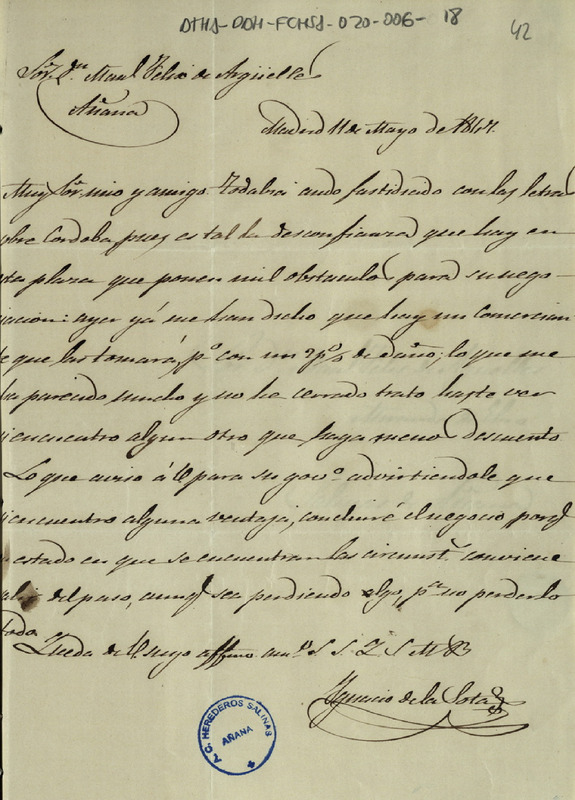 DTHA-DDH-FCHSA-020-006-18
42
Sor. Dn. Manl. Felix de Argüelles
Añana
Madrid 11 de Mayo de 1847.
Muy Sor. mio y amigo todabia ando fastidiado con las letras
obre Cordoba pues es tal la desconfianza que hay en
sta plaza que ponen mil obstaculos para su nego-
iacion: ayer yá me han dicho que hay un Comercian
te que las tomará, po. con un 2 p% de daño; lo que me
ha parecido mucho y no he cerrado trato hasta ver
i encuentro algun otro que haga menos descuento
Lo que aviso á V. para su govo. advirtiendole que
i encuentro alguna ventaja, concluiré el negocio porq.
estado en que se encuentran las circunsts. conviene
alir del paso, aunq. sea perdiendo algo, pr. no perderlo
todo.
Queda de V. suyo affmo amo. S. S. Q S M B
Ignacio de la Sota
J. C. HEREDEROS SALINAS
AÑANA